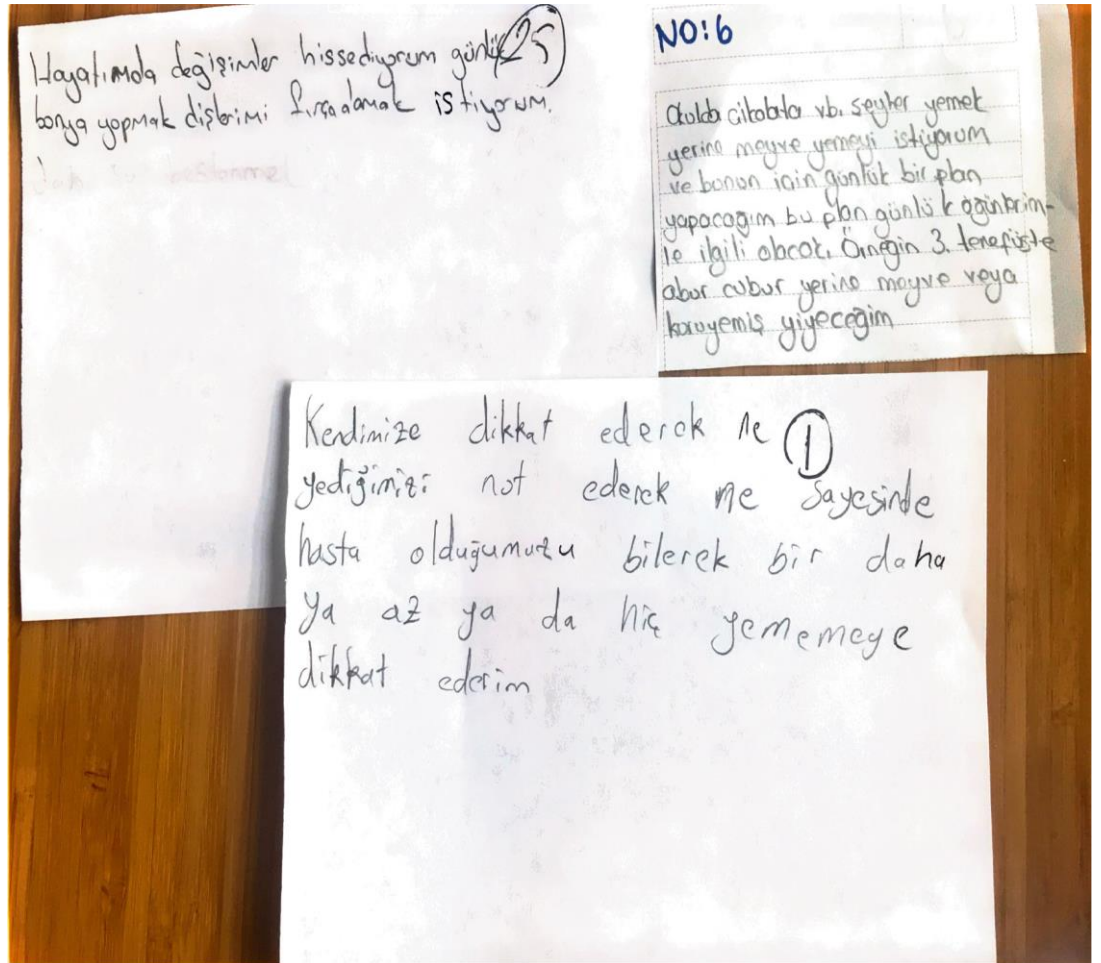 Hayatımda değişimler hissediyorum günlük 25
banya yapmak dişlerimi fırçalamak istiyorum.
NO:6
Okulda cikolata vb. şeyler yemek
yerine meyve yemeyi istiyorum
ve bonun için günlük bir plan
yapacağım bu plan günlük öğünlerim-
le ilgili olacak. Örneğin 3. tenefüste
abur cubur yerine meyve veya
koruyemiş yiyeceğim
Kendimize dikkat ederek ne 1
yediğimizi not ederek ne sayesinde
hasta olduğumuzu bilerek bir daha
ya az ya da hiç yememeye
dikkat ederim